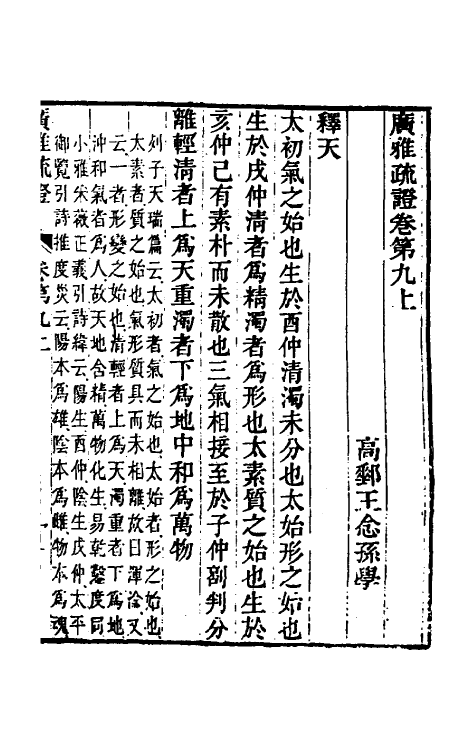 廣雅疏證卷第九上
高郵王念孫學
釋天
太初氣之始也生於酉仲清濁未分也太始形之始也
生於戌仲清者爲精濁者爲形也太素質之始也生於
亥仲已有素朴而未散也三氣相接至於子仲剖判分
離輕清者上爲天重濁者下爲地中和爲萬物
列子天瑞篇云太初者氣之始也太始者形之始也
太素者質之始也氣形質具而未相離故曰渾淪又
云一者形變之始也清輕者上爲天濁重者下爲地
沖和氣者爲人故天地含精萬物化生易乾鑿度同
小雅采薇正義引詩緯云陽生酉仲陰生戌仲太平
御覽引詩推度災云陽本爲雄陰本爲雌物本爲魂
廣雅疏證 卷第九上